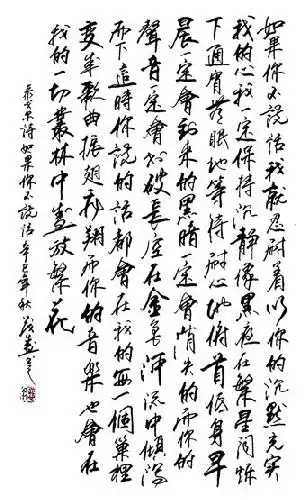 如果你不說話我就忍耐着以你的沉默充实
我的心我一定保持沉静像黑夜在繁星闪烁
下通宵无眠地等待耐心地俯首低身早
晨一定會到来的黑暗一定會消失的而你的
聲音一定會划破長空在金色洋流中傾瀉
而下這時你說的話都會在我的每一個巢裡
变成歌曲振翅飛翔而你的音樂也會在
我的一切叢林中盛放繁花
泰戈尔詩如果你不說話辛巳年秋